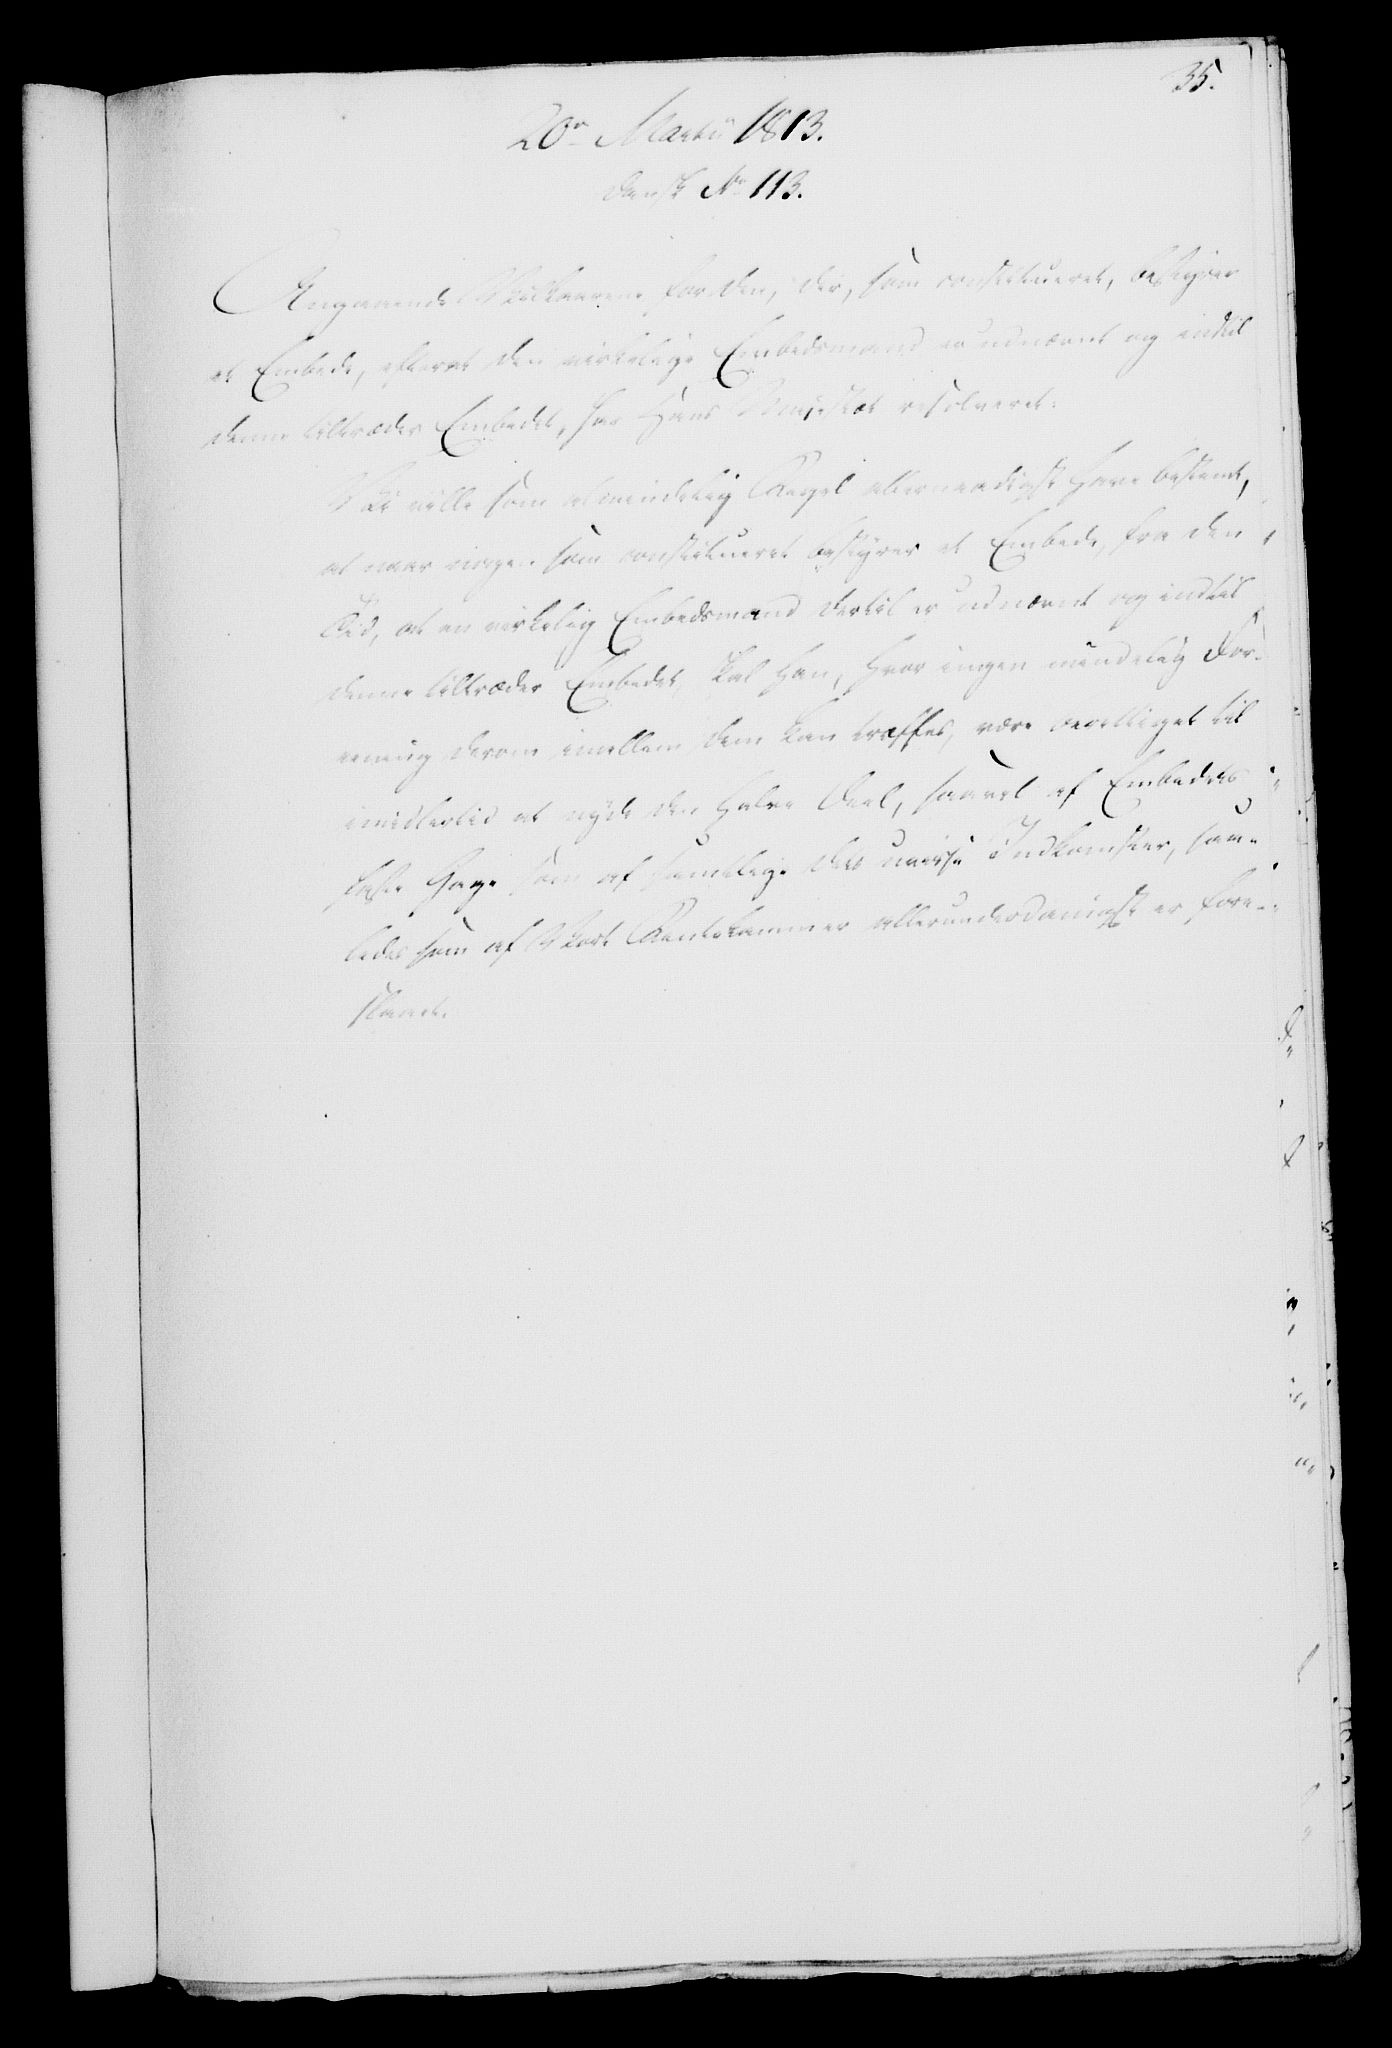 35.
20de Martii 1813.
dansk No 113.
Angaaende Vilkaarene for den, der, som constitueret, bestyrer
et Embede, efterat den virkelige Embedsmand er udnævnt og indtil
denne tiltræder Embedet, har Hans Majestæt resolveret:
Vi ville som almindelig Regel allernaadigst have bestemt,
at naar nogen som constitueret bestyrer et Embede, fra den
Tid, at en virkelig Embedsmand dertil er udnævnt og indtil
denne tiltræder Embedet, skal han, hvor ingen mindelig For-
eening derom imellem dem kan træffes, være berettiget til
imidlertid at nyde den halve Deel, saavel af Embedets
faste Gage som af samtlige dets uvisse Indkomster, saa-
ledes som af Vort Rentekammer allerunderdanigst er fore-
slaaet.